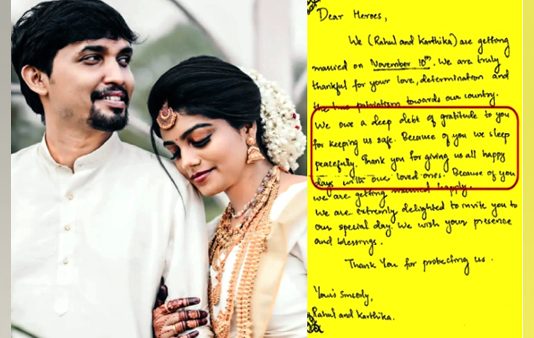 Dear Heroes,
We (Rahul and Karthika) are getting
married on November 10th. We are truly
thankful for your love, determination and
the true patriotism towards our country.
We owe a deep debt of gratitude to you
for keeping us safe. Because of you we sleep
peacefully. Thank you for giving us all happy
days with our loved ones. Because of you
we are getting married happily.
We are extremly delighted to invite you to
our special day. We wish your presence
and blessings.
Thank You for protecting us.
Yours sincerely,
Rahul and Karthika.